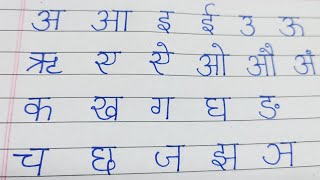 अ आ इ ई उ ऊ
ऋ ए ऐ ओ औ अं
क ख ग घ ङ
च छ ज झ ञ